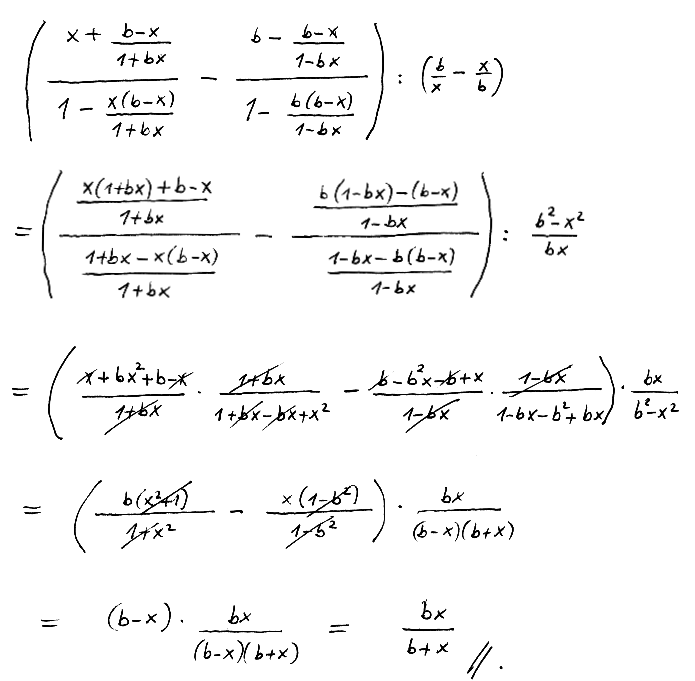 ( (x + (b-x)/(1+bx)) / (1 - x(b-x)/(1+bx)) - (b - (b-x)/(1-bx)) / (1 - b(b-x)/(1-bx)) ) : (b/x - x/b)
= ( ((x(1+bx)+b-x)/(1+bx)) / ((1+bx-x(b-x))/(1+bx)) - ((b(1-bx)-(b-x))/(1-bx)) / ((1-bx-b(b-x))/(1-bx)) ) : (b²-x²)/(bx)
= ( (x+bx²+b-x)/(1+bx) · (1+bx)/(1+bx-bx+x²) - (b-b²x-b+x)/(1-bx) · (1-bx)/(1-bx-b²+bx) ) · bx/(b²-x²)
= ( b(x²+1)/(1+x²) - x(1-b²)/(1-b²) ) · bx/((b-x)(b+x))
= (b-x) · bx/((b-x)(b+x)) = bx/(b+x) //.